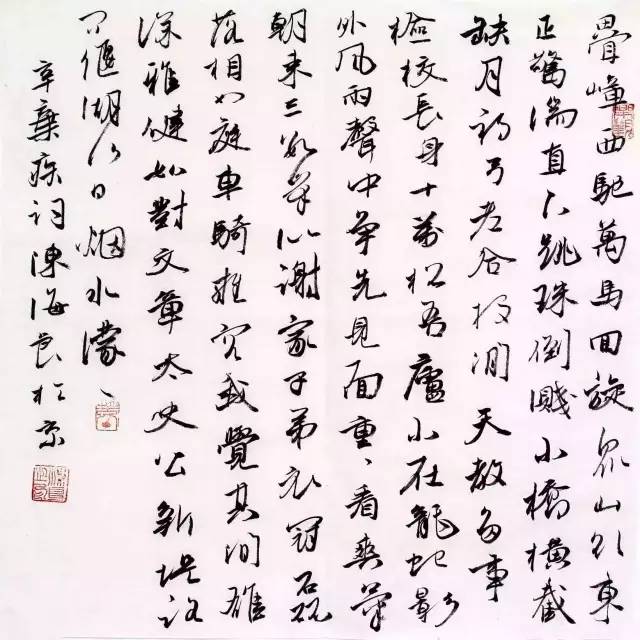 疊嶂西馳萬馬回旋眾山欲東
正驚湍直下跳珠倒濺小橋橫截
缺月初弓老合投閒天教多事
檢校長身十萬松吾廬小在龍蛇影
外風雨聲中爭先見面重、看爽氣
朝來三數峯似謝家子弟衣冠磊
落相如庭車騎雍容我覺其間雄
深雅健如對文章太史公新堤路
問偃湖何日烟水濛、
辛棄疾詞陳海良於京